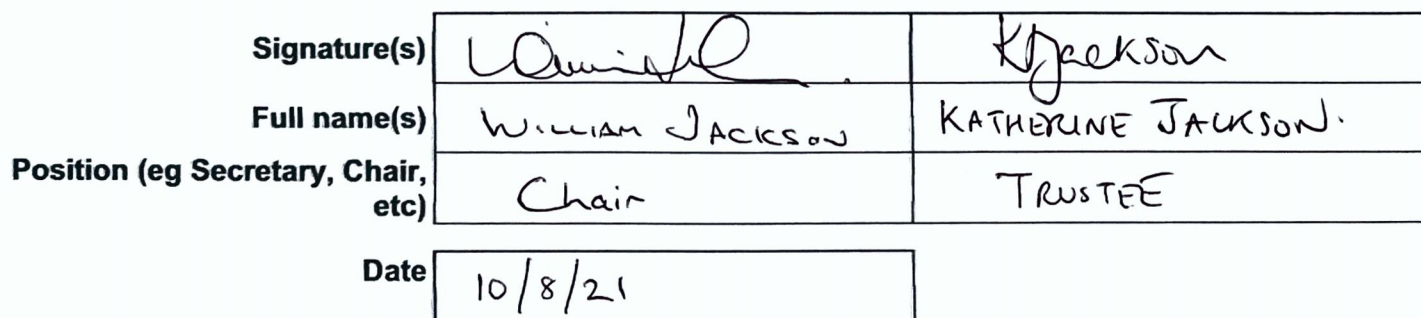 Signature(s) KJackson
Full name(s) WILLIAM JACKSON KATHERINE JACKSON.
Position (eg Secretary, Chair,
etc) Chair TRUSTEE
Date 10/8/21